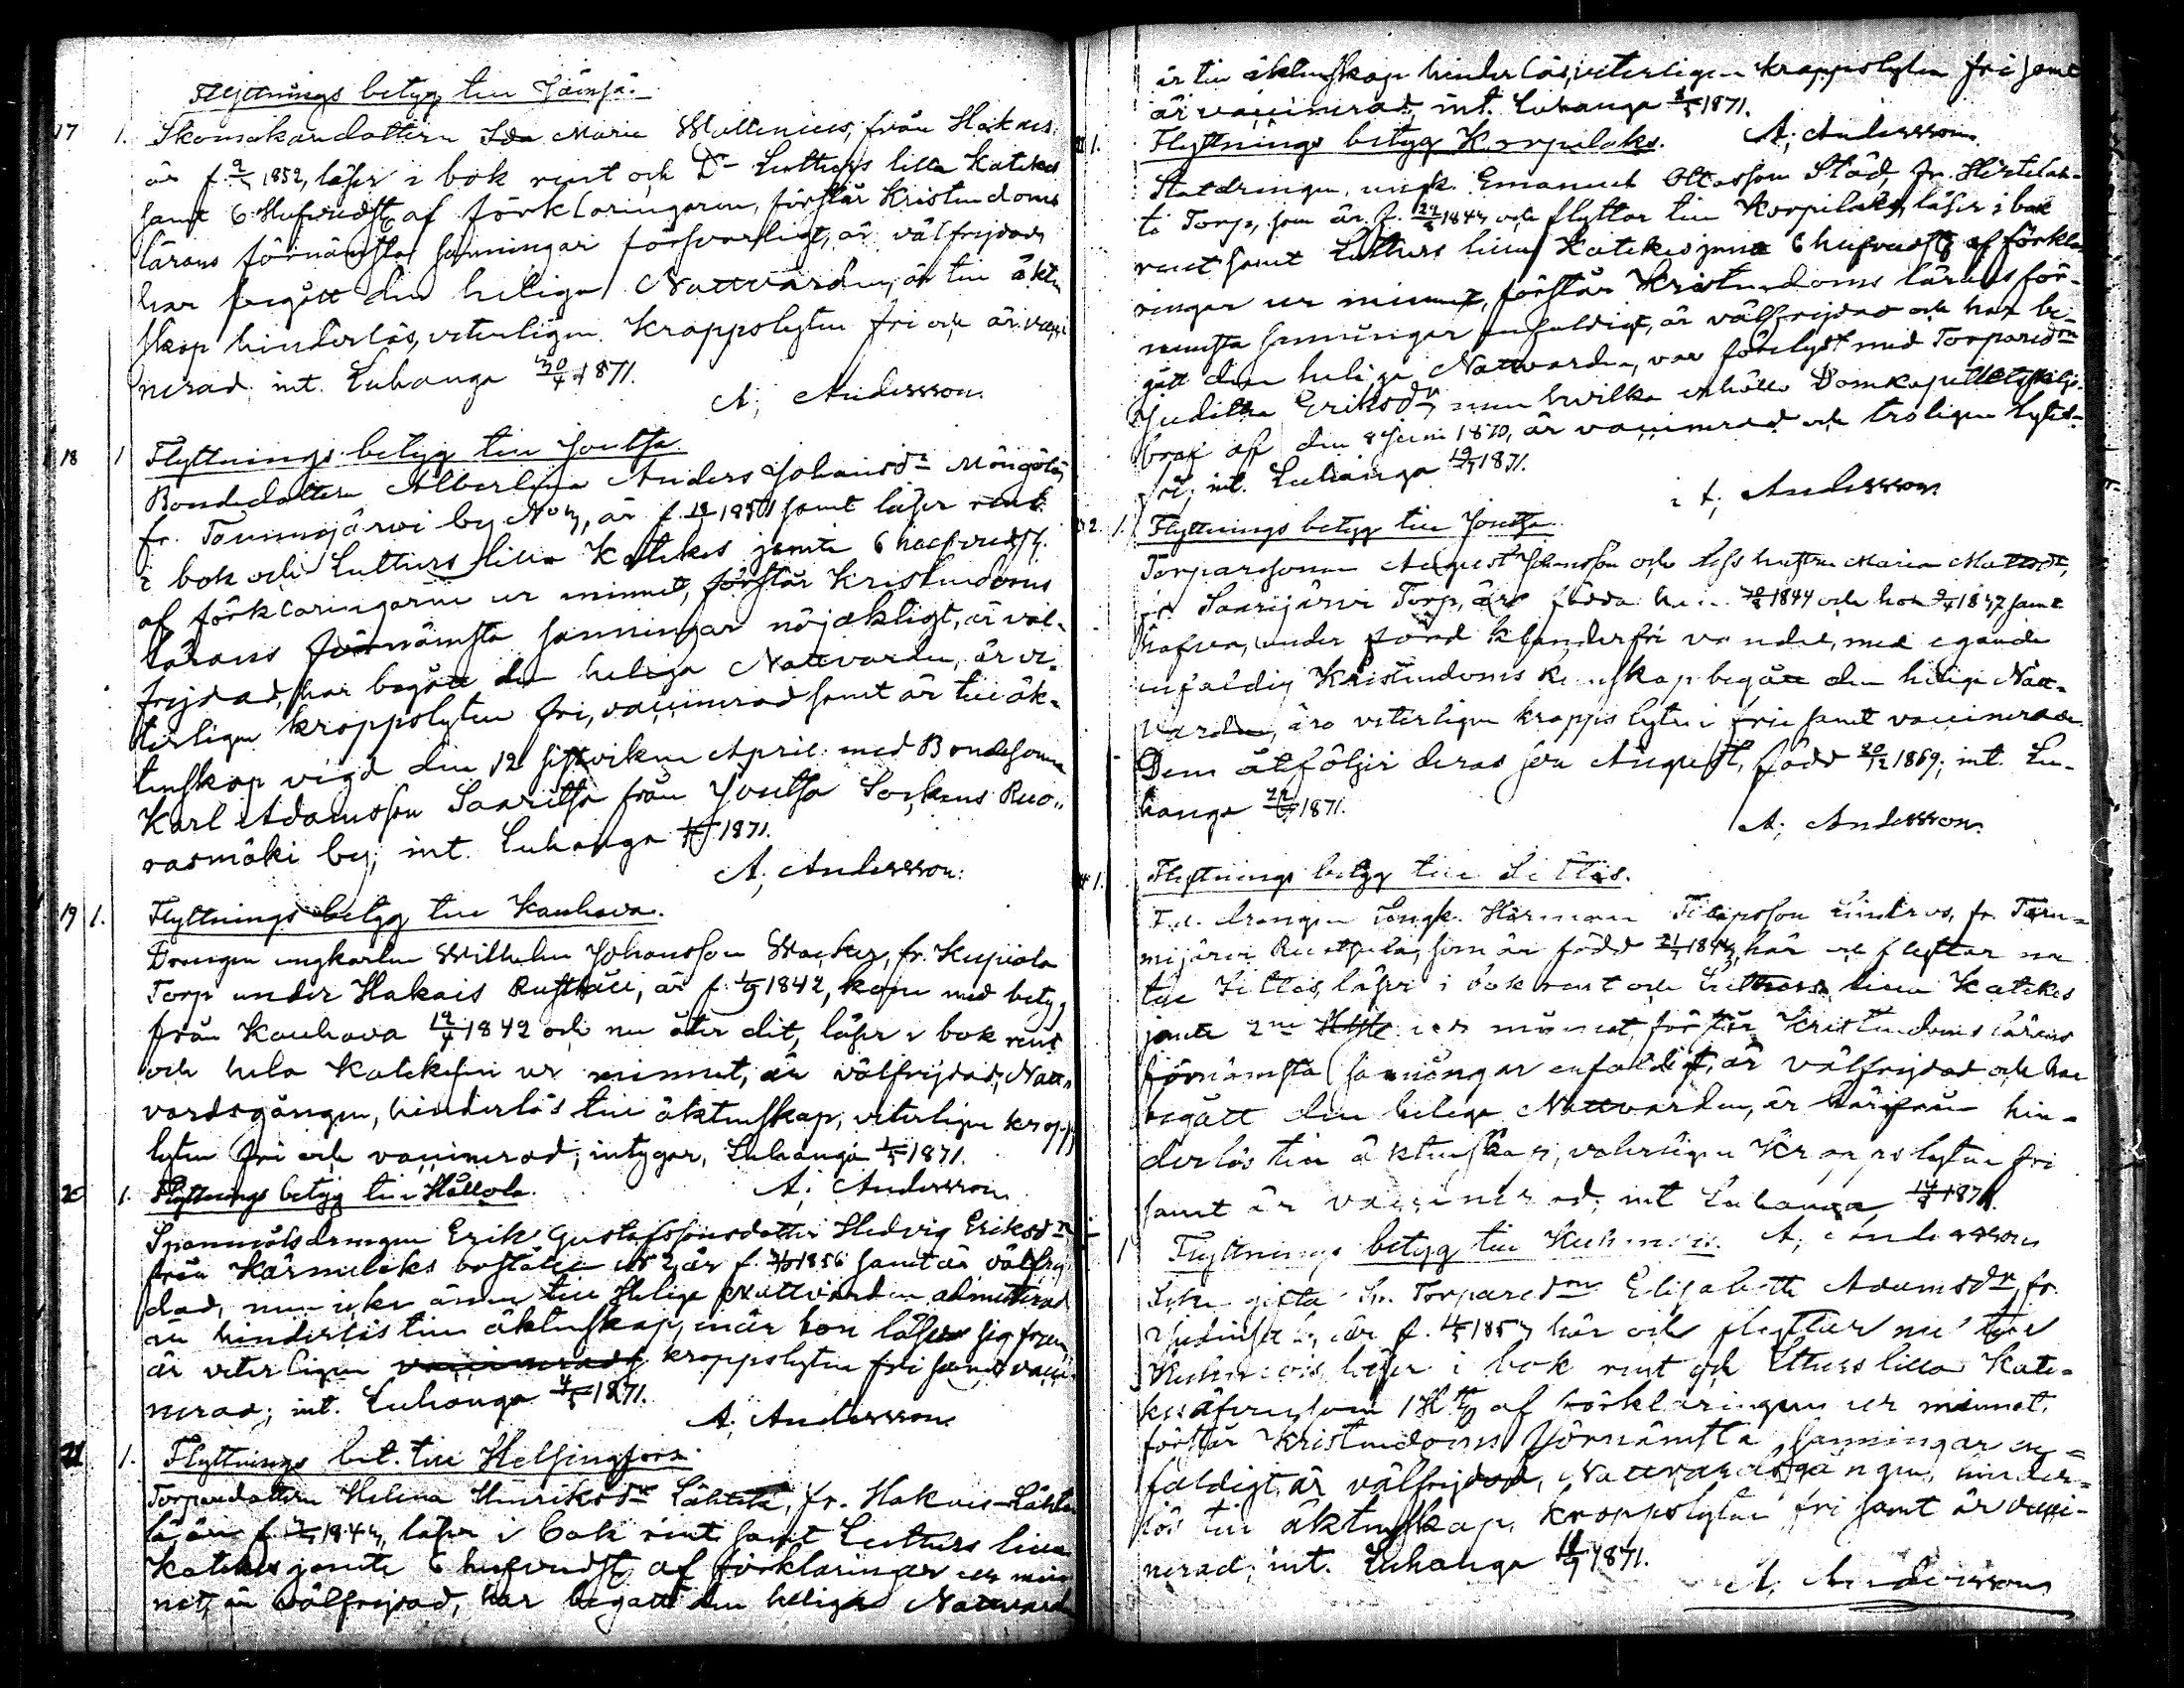 Flyttnings betyg till Jämsä.
17 1. Skomakaredottern Ida Maria Wallenius, från Hakais
är f. 2/5 1852, läser i bok rent och Dr Lutters lilla Katekes
samt 6 Hufvudst. af förklaringarna, förstår Kristendoms
lärans förnämsta sanningar försvarligt, är välfrejdad,
har begått den heliga Nattvarden, är till äkten
skap hinderlös, veterligen kroppslyten fri och är vacci
nerad; int. Luhanga 30/4 1871.
A; Andersson.
18 1 Flyttnings betyg till Joutsa.
Bondedottern Albertina Anders Johansdr
fr. Tammijärvi by No, är f. samt läser rent
i bok och Lutters lilla Katekes jemte 6 hufvudst.
af förklaringarne ur minnet, förstår Kristendoms
lärans förnämsta sanningar nöjaktigt, är väl-
frejdad, har begått den heliga Nattvarden, är ve-
terligen kroppslyten fri, vaccinerad samt är till äk-
tenskap vigd den 12 sistvikne April med Bondesonen
Karl Adamsson Saaritsa från Joutsa Sockens Ruo-
rasmäki by; int. Luhanga 1871.
A; Andersson.
19 1. Flyttnings betyg till Kauhava.
Drengen ungkarlen Wilhelm Johansson fr. Kupiala
Torp under Hakais Rusthåll, är f. 1842, kom med betyg
från Kauhava och nu åter dit, läser i bok rent
och hela Katekesen ur minnet, är välfrejdad, Natt-
vardsgången, hinderlös till äktenskap, veterligen kropps
lyten fri och vaccinerad; intygar, Luhanga 1/5 1871.
A; Andersson
20 1. Flyttnings betyg till Hollola.
Spannmålsdrengen Erik Gustafssonsdotter Hedvig Eriksdr
från Kärmeläks boställe är f. 1856 samt är välfrej
dad, men icke ännu till Heliga Nattvarden admitterad
är hinderlös till äktenskap, när hon läser sig fram,
är veterligen vaccinerad, kroppslyten fri samt vacci
nerad; int. Luhanga 4/5 1871.
A; Andersson
21 1. Flyttnings bet. till Helsingfors.
Torparedottern Helena Henriksdr Lähtelä, fr. Hakais Lähte
lä är f. läser i bok rent samt Lutters lilla
Katekes jemte 6 hufvudst. af förklaringar ur min
net, är välfrejdad, har begått den heliga Nattvarden
är till äktenskap hinderlös, veterligen kroppslyten fri samt
är vaccinerad, int. Luhanga 1871.
A; Andersson
1. Flyttnings betyg Korpilaks.
Statdrengen, ungk. Emanuel Ottosson Städ, fr.
Torp, som är f. och flyttar till Korpilaks, läser i bok
rent samt Lutters lilla Katekes jemte 6 hufvudst. af förkla
ringar ur minnet, förstår Kristendoms lärans för-
nemsta sanningar enfaldigt, är välfrejdad och har be-
gått den heliga Nattvarden, var förelyst med Torparedn
Juditha Eriksdr, men hvilka erhållo Domkapitlets skiljo
bref af den 8 Juni 1870, är vaccinerad och troligen lytes-
fri; int. Luhanga 1871.
A; Andersson
1. Flyttnings betyg till Joutsa.
Torparesonen August Johansson och dess hustru Maria Mattsdr,
fr. Saarijärvi Torp, äro födda han 1844 och hon samt
hafva, under förd klanderfri vandel, med egande
enfaldig Kristendoms kunskap begått den heliga Natt-
varden, äro veterligen kroppslyten fria samt vaccinerade
Dem åtföljer deras son August, född 20/12 1869; int. Lu-
hanga 1871.
A; Andersson.
1. Flyttnings betyg till Sittis.
F.d. drengen Ungk. Herman Filipsson fr. Tam-
mijärvi som är född här och flyttar nu
till Sittis, läser i bok rent och Lutters lilla Katekes
jemte 2ne ur minnet, förstår Kristendoms lärans
förnämsta sanningar enfaldigt, är välfrejdad och har
begått den heliga Nattvarden, är härifrån hin-
derlös till äktenskap, veterligen Kroppslyten fri
samt är vaccinerad; int Luhanga 1871.
A; Andersson
1 Flyttnings betyg till Kuhmois.
gifta Torparedn Elisabeth Adamsdr, fr.
är f. här och flyttar nu till
Kuhmois, läser i bok rent och Lutters lilla Kate-
kes äfvensom 1 Hst af förklaringen ur minnet,
förstår Kristendoms förnämsta sanningar en-
faldigt, är välfrejdad, Nattvardsgången, hinder-
lös till äktenskap, kroppslyten fri samt är vacci-
nerad; int. Luhanga 1871.
A; Andersson